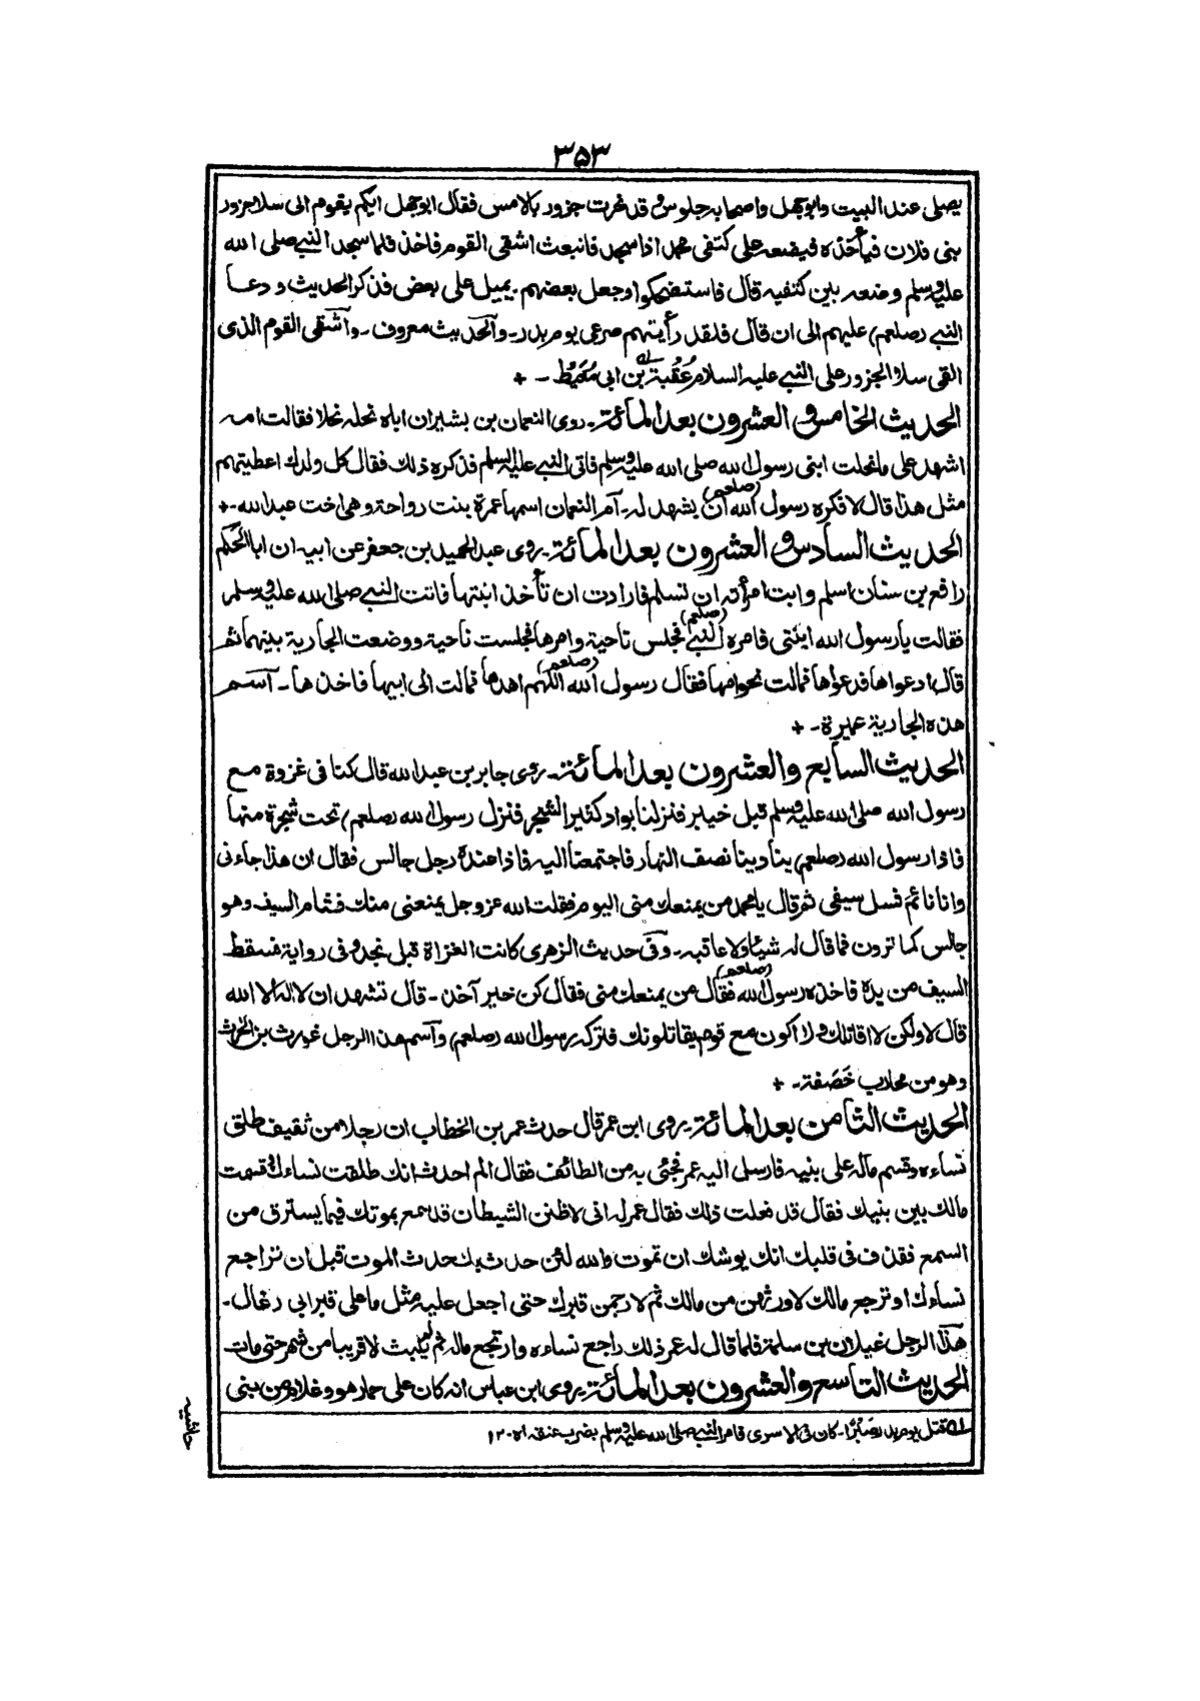 ٣٥٣
يصلى عند البيت وابوجهل واصحابه جلوس وقد نحرت جزور بالامس فقال ابوجهل ايكم يقوم الى سلا جزور
بنى فلان فيأخذه فيضعه على كتفى محمد اذا سجد فانبعث اشقى القوم فاخذ فلما سجد النبي صلى الله
عليه وسلم وضعه بين كتفيه قال فاستضحكوا وجعل بعضهم يميل على بعض فذكر الحديث ودعا
النبي (صلعم) عليهم الى ان قال فلقد رأيتهم صرعى يوم بدر - والحديث معروف - وآشقى القوم الذى
القى سلا الجزور على النبي عليه السلام عُقبة بن ابى مُعَيط - +
الحديث الخامس والعشرون بعد المائة - روى النعمان بن بشير ان اباه نحله نحلا فقالت امه
اشهد على ما نحلت ابنى رسول الله صلى الله عليه وسلم فاتى النبي عليه السلم فذكره ذلك فقال كل ولدك اعطيتهم
مثل هذا قال لا فكره رسول الله (صلعم) ان يشهد له - آم النعمان اسمها عمرة بنت رواحة وهى اخت عبد الله - +
الحديث السادس والعشرون بعد المائة - روى عبد الحميد بن جعفر عن ابيه ان ابا الحَكَم
رافع بن سنان اسلم وابت امرأته ان تسلم فارادت ان تأخذ ابنتها فاتت النبي صلى الله عليه وسلم
فقالت يا رسول الله ابنتى فامره النبي (صلعم) فجلس ناحية وامرها فجلست ناحية ووضعت الجارية بينهما ثم
قال ادعواها فدعواها فمالت نحو امها فقال رسول الله (صلعم) اللهم اهدها فمالت الى ابيها فاخذها - آسم
هذه الجارية عميرة - +
الحديث السابع والعشرون بعد المائة - روى جابر بن عبد الله قال كنا فى غزوة مع
رسول الله صلى الله عليه وسلم قبل خيبر فنزلنا بواد كثير الشجر فنزل رسول الله (صلعم) تحت شجرة منها
فاذا رسول الله (صلعم) ينادينا نصف النهار فاجتمعنا اليه فاذا عنده رجل جالس فقال ان هذا جاءنى
وانا نائم فسل سيفى ثم قال يا محمد من يمنعك منى اليوم فقلت الله عز وجل يمنعنى منك فشام السيف وهو
جالس كما ترون فما قال له شيئا ولا عاقبه - وفى حديث الزهرى كانت الغزاة قبل نجد وفى رواية فسقط
السيف من يده فاخذه رسول الله (صلعم) فقال من يمنعك منى فقال كن خير آخذ - قال تشهد ان لا اله الا الله
قال لا ولكن لا اقاتلك ولا اكون مع قوم يقاتلونك فتركه رسول الله (صلعم) وآسم هذا الرجل غورث بن الحرث
وهو من محارب خَصَفة - +
الحديث الثامن بعد المائة - روى ابن عمر قال حدث عمر بن الخطاب ان رجلا من ثقيف طلق
نساءه وقسم ماله على بنيه فارسل اليه عمر فجئى به من الطائف فقال الم احدث انك طلقت نساءك وقسمت
مالك بين بنيك فقال قد فعلت ذلك فقال عمر له انى لاظن الشيطان قد سمع بموتك فيما يسترق من
السمع فقذف فى قلبك انك يوشك ان تموت والله لئن حدث بك حدث الموت قبل ان تراجع
نساءك او ترجع مالك لاورثهن من مالك ثم لارجمن قبرك حتى اجعل عليه مثل ما على قبر ابى رغال -
هذا الرجل غيلان بن سلمة فلما قال له عمر ذلك راجع نساءه وارتجع ماله ثم لم يلبث الا قريبا من شهر حتى مات
الحديث التاسع والعشرون بعد المائة - روى ابن عباس انه كان على حمار هو وغلام من بنى
له قتل يوم بدر صَبْرًا - كان فى الاسرى فامر النبي صلى الله عليه وسلم بضرب عنقه اه ١٢٠
حاشيه